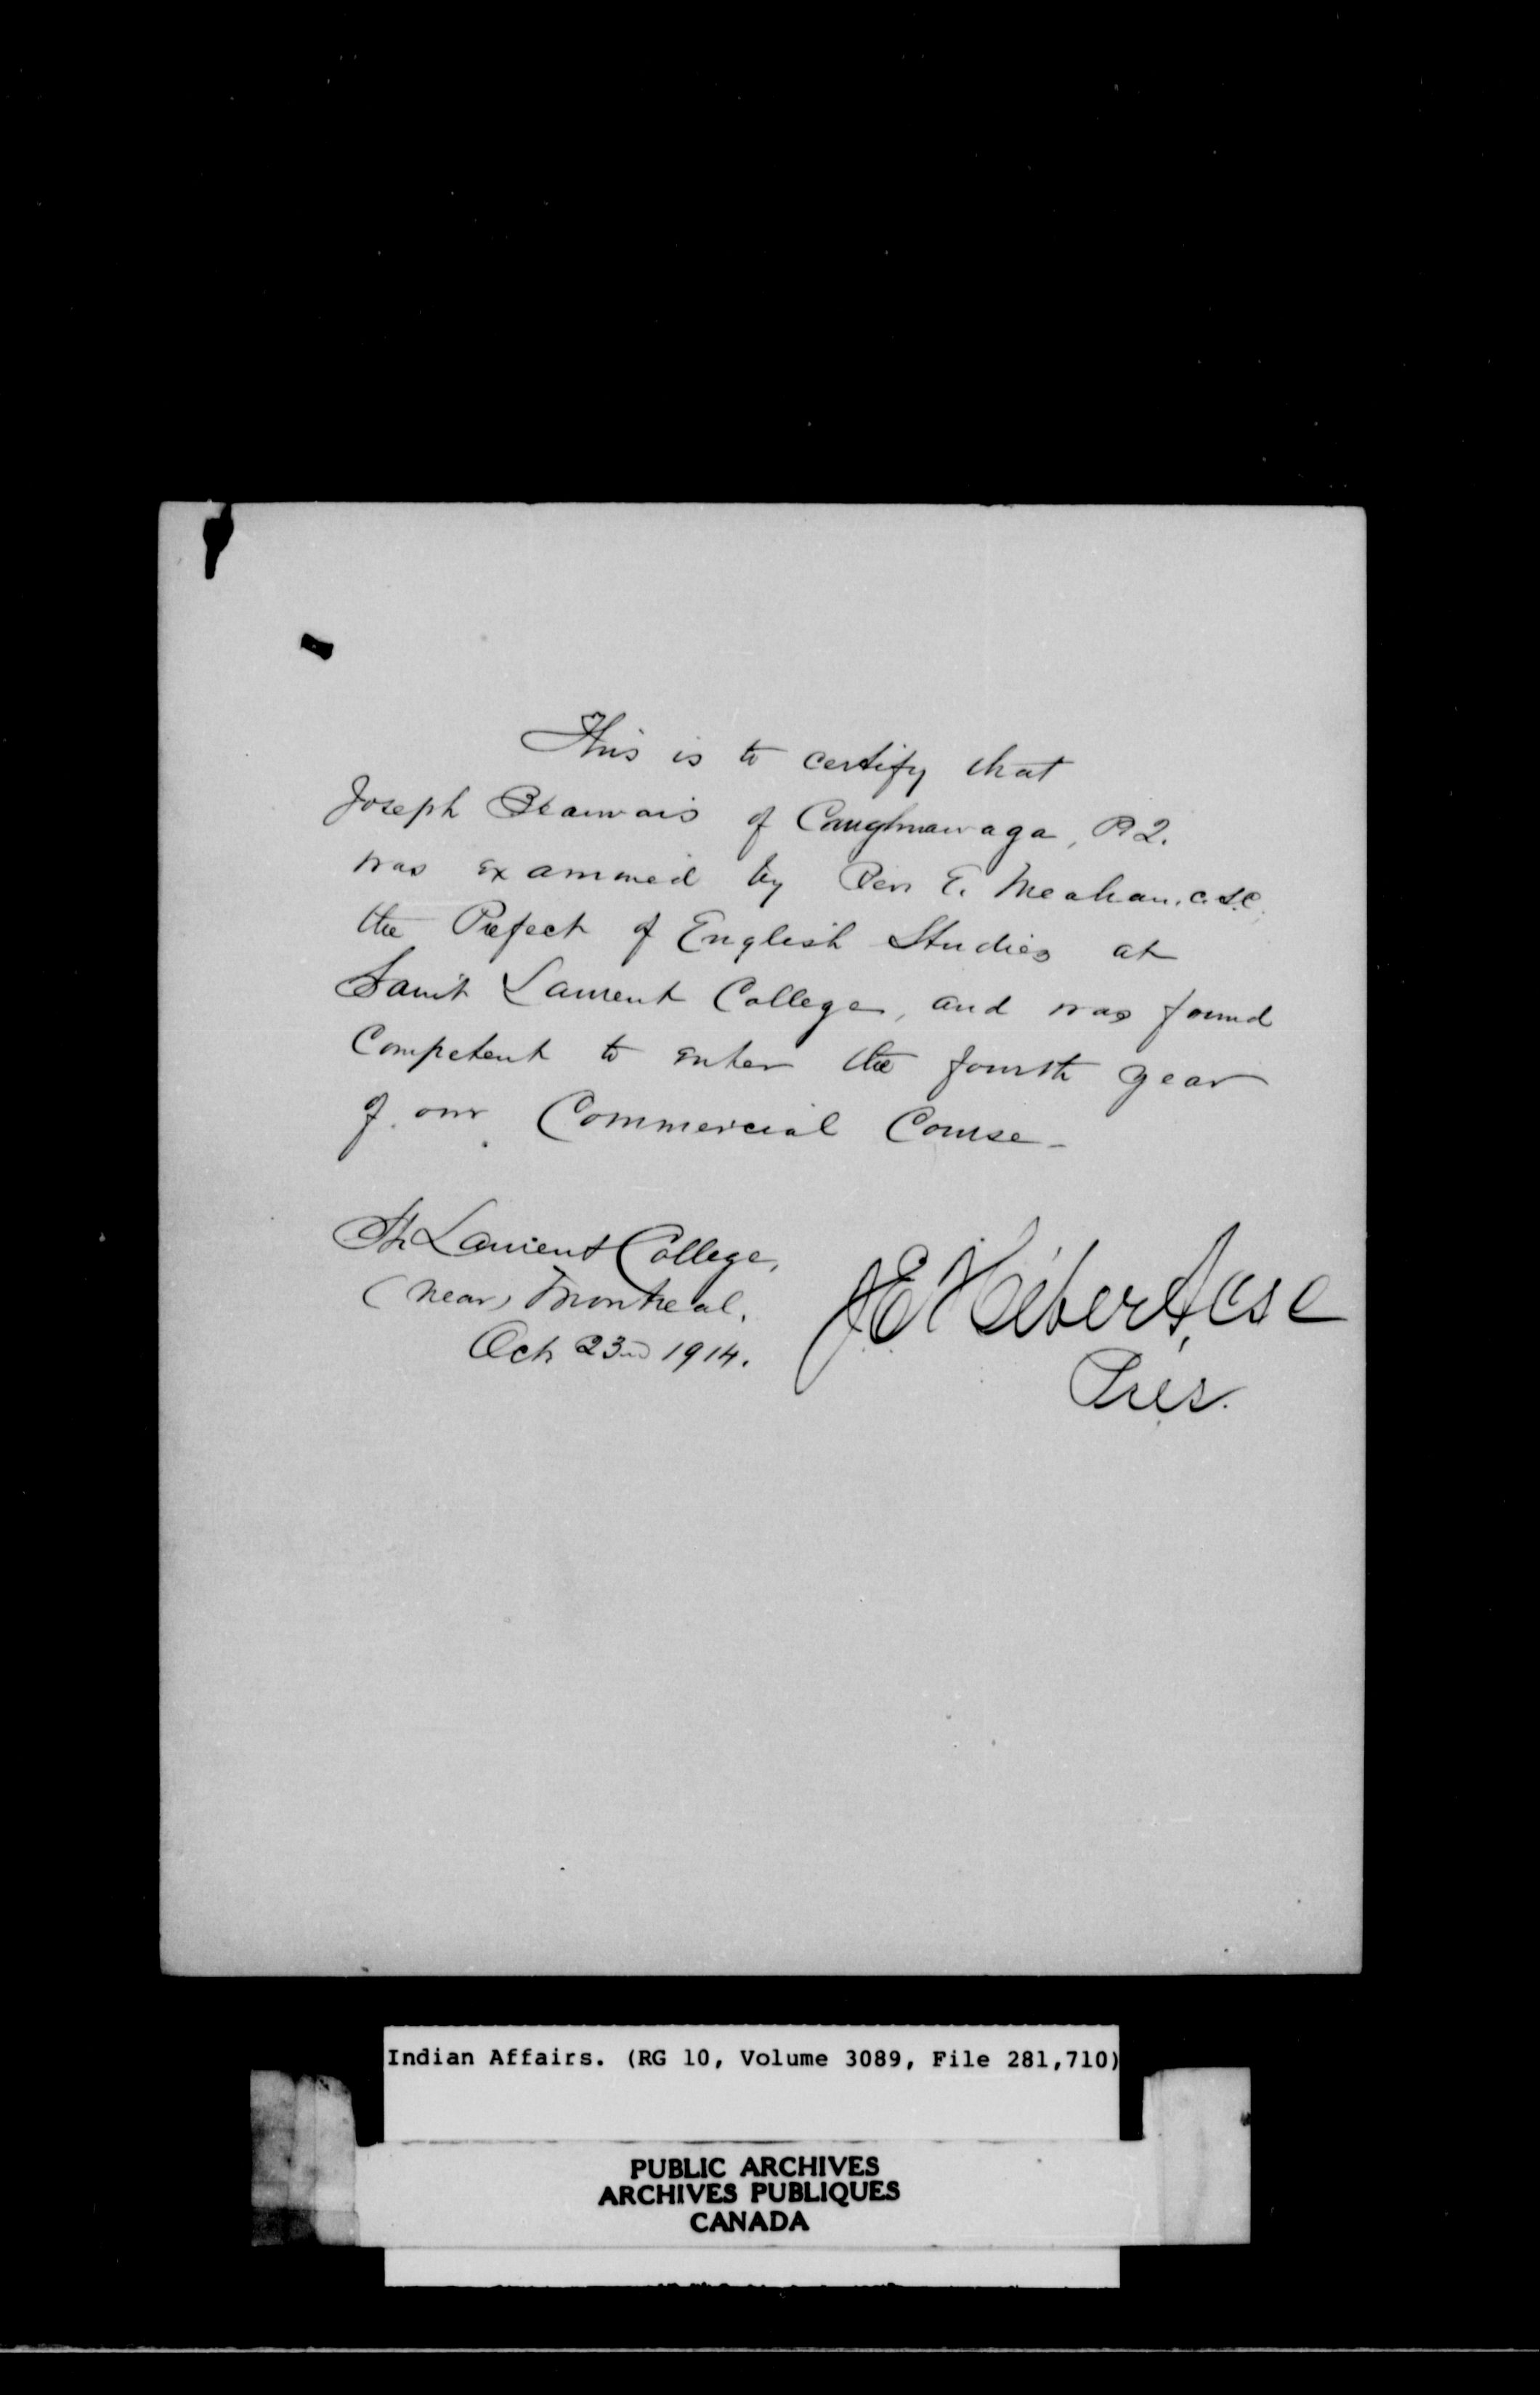 This is to certify that
Joseph Beauvais of Caughnawaga, P.Q.
was examined by Rev E. Meahan, c.s.c.
the Prefect of English Studies at
Saint Laurent College, and was found
Competent to enter the fourth year
of our Commercial Course -
St Laurent College,
(near) Montreal.
Oct 23rd 1914.
JE Hébert, csc
Pres.
Indian Affairs. (RG 10, Volume 3089, File 281,710)
PUBLIC ARCHIVES
ARCHIVES PUBLIQUES
CANADA